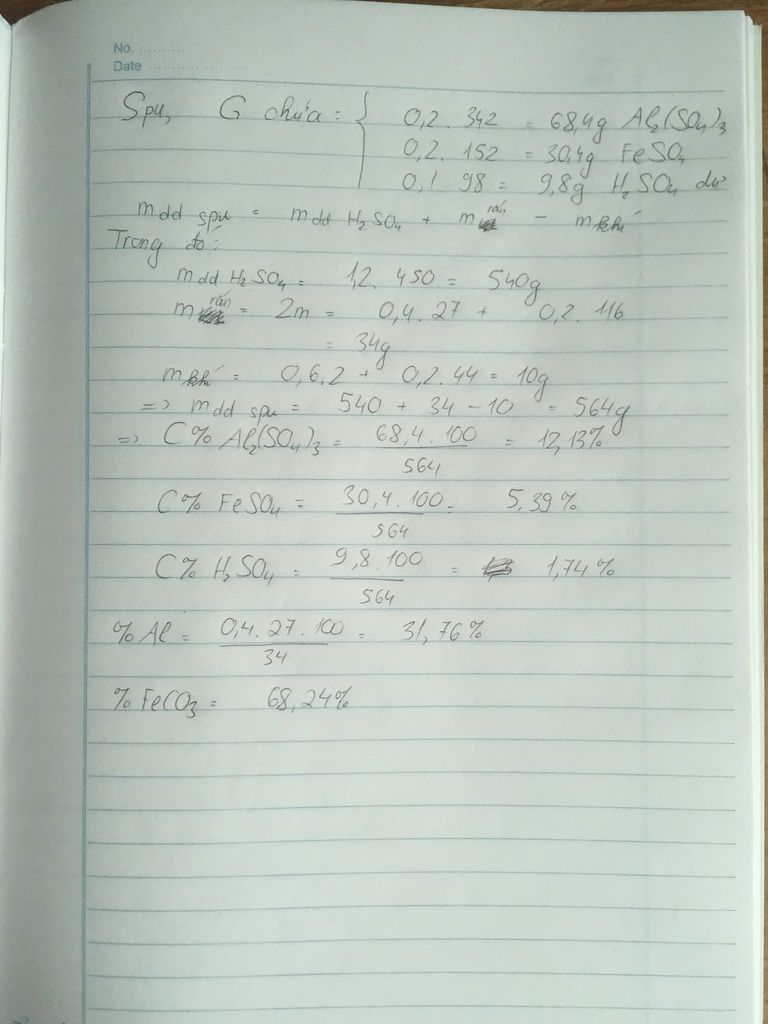 No. ............
Date ........................
Spu, G chứa: { 0,2. 342 = 68,4g Al2(SO4)3
0,2. 152 = 30,4g FeSO4
0,1 98 = 9,8g H2SO4 dư
mdd spu = mdd H2SO4 + m rắn - m khí
Trong đó:
mdd H2SO4 = 1,2. 450 = 540g
m rắn = 2m = 0,4. 27 + 0,2. 116
= 34g
m khí = 0,6. 2 + 0,2. 44 = 10g
=> mdd spu = 540 + 34 - 10 = 564g
=> C% Al2(SO4)3 = 68,4. 100 = 12,13%
564
C% FeSO4 = 30,4. 100 = 5,39%
564
C% H2SO4 = 9,8. 100 = 1,74%
564
% Al = 0,4. 27. 100 = 31,76%
34
% FeCO3 = 68,24%